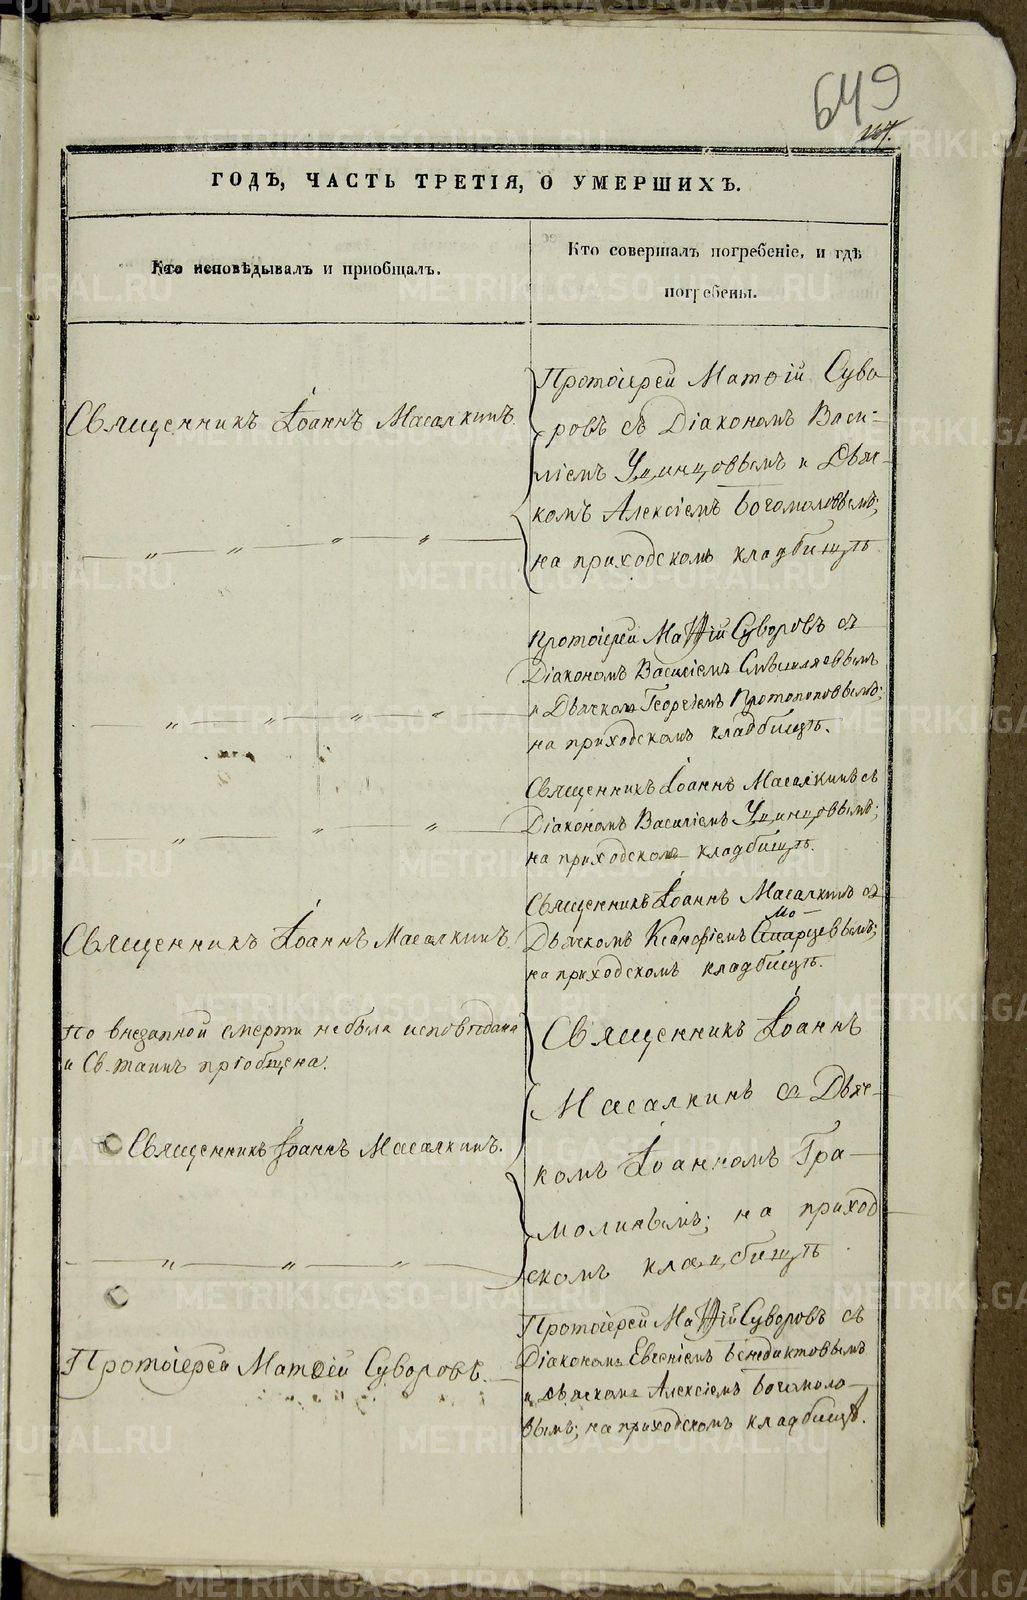 649
ГОДЪ, ЧАСТЬ ТРЕТІЯ, О УМЕРШИХЪ.
Кто исповѣдывалъ и пріобщалъ.
Кто совершалъ погребеніе, и гдѣ
погребены.
Священникъ Іоаннъ Масалкинъ.
Протоіерей Матѳій Суво
ровъ съ Діакономъ Васи-
ліемъ Удинцовымъ и Дьяч-
комъ Алексіемъ Богомоловымъ;
на приходскомъ кладбищѣ
— „ — „ — „ — „ —
Протоіерей Матѳій Суворовъ съ
Діакономъ Василіемъ Смышляевымъ
и Дьячкомъ Георгіемъ Протопоповымъ;
на приходскомъ кладбищѣ.
— „ — „ — „ — „ —
Священникъ Іоаннъ Масалкинъ съ
Діакономъ Василіемъ Удинцовымъ;
на приходскомъ кладбищѣ.
— „ — „ — „ —
Священникъ Іоаннъ Масалкинъ.
Священникъ Іоаннъ Масалкинъ съ
Дьячкомъ Ксанфіемъ
на приходскомъ кладбищѣ.
По внезапной смерти не была исповѣдана
и Св. таинъ пріобщена.
Священникъ Іоаннъ Масалкинъ.
— „ — „ — „ —
Священникъ Іоаннъ
Масалкинъ съ Дьяч-
комъ Іоанномъ Гра-
молинымъ; на приход
скомъ кладбищѣ
Протоіерей Матѳій Суворовъ.
Протоіерей Матѳій Суворовъ съ
Діакономъ Евгеніемъ Бенедиктовымъ
и дьячкомъ Алексіемъ Богомоло-
вымъ; на приходскомъ кладбищѣ.
METRIKI.GASO-URAL.RU